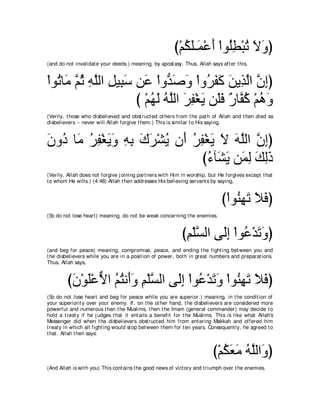 (وَلاَ تُبْطِلُواْ أَعْمَـلَكُمْ)
(and do not invalidate your deeds.) meaning, by apostasy. Thus, Allah says after this,
إِنَّ الَّذِينَ كَفَرُواْ وَصَدُّواْ عَن سَبِيلِ اللَّهِ ثُمَّ مَاتُواْ
وَهُمْ كُفَّارٌ فَلَن يَغْفِرَ اللَّهُ لَهُمْ )
(Verily, those who disbelieved and obstructed others from the path of Allah and then died as
disbelievers -- never will Allah forgive them.) This is similar to His saying,
إِنَّ اللَّهَ لاَ يَغْفِرُ أَن يُشْرَكَ بِهِ وَيَغْفِرُ مَا دُونَ
ذَلِكَ لِمَن يَشَآءُ)
(Verily, Allah does not forgive joining partners with Him in worship, but He forgives except that
to whom He wills.) (4:48) Allah then addresses His believing servants by saying,
(فَلاَ تَهِنُواْ)
(So do not lose heart) meaning, do not be weak concerning the enemies.
(وَتَدْعُواْ إِلَى السَّلْمِ)
(and beg for peace) meaning, compromise, peace, and ending the fighting between you and
the disbelievers while you are in a position of power, both in great numbers and preparations.
Thus, Allah says,
(فَلاَ تَهِنُواْ وَتَدْعُواْ إِلَى السَّلْمِ وَأَنتُمُ الاٌّعْلَوْنَ)
(So do not lose heart and beg for peace while you are superior.) meaning, in the condition of
your superiority over your enemy. If, on the other hand, the disbelievers are considered more
powerful and numerous than the Muslims, then the Imam (general commander) may decide to
hold a treaty if he judges that it entails a benefit for the Muslims. This is like what Allah's
Messenger did when the disbelievers obstructed him from entering Makkah and offered him
treaty in which all fighting would stop between them for ten years. Consequently, he agreed to
that. Allah then says:
(وَاللَّهُ مَعَكُمْ)
(And Allah is with you) This contains the good news of victory and triumph over the enemies.